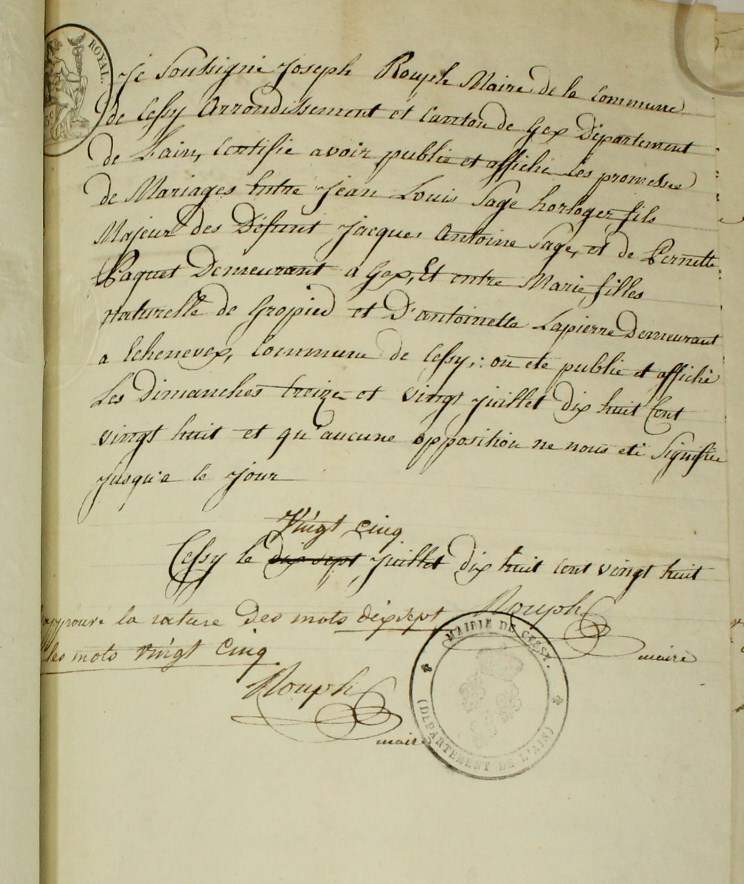 ROYAL.
Je Soussigné Joseph Rouph Maire de la commune
de Cessy Arrondissement et Canton de Gex Département
de Lain, Certifie avoir publié et affiché les promesse
de Mariages Entre Jean Louis Sage horloger fils
Majeur des Défunt Jacques Antoine Sage, et de Pernette
Paquet Demeurant a Gex, Et entre Marie filles
Naturelle de Gropied et D'antoinette Lapierre Demeurant
a Echenevex, Commune de Cessy,: on eté publie et affiché
Les Dimanches treize et vingt Juillet dix huit Cent
vingt huit et qu'aucune opposition ne nous eté Signifiée
jusqu'a le jour
Vingt cinq
Cessy le dix sept Juillet dix huit cent vingt huit
approuve la rature des mots dix sept Rouph
les mots vingt cinq maire
Rouph
maire
MAIRIE DE CESSY.
(DÉPARTEMENT DE L'AIN)